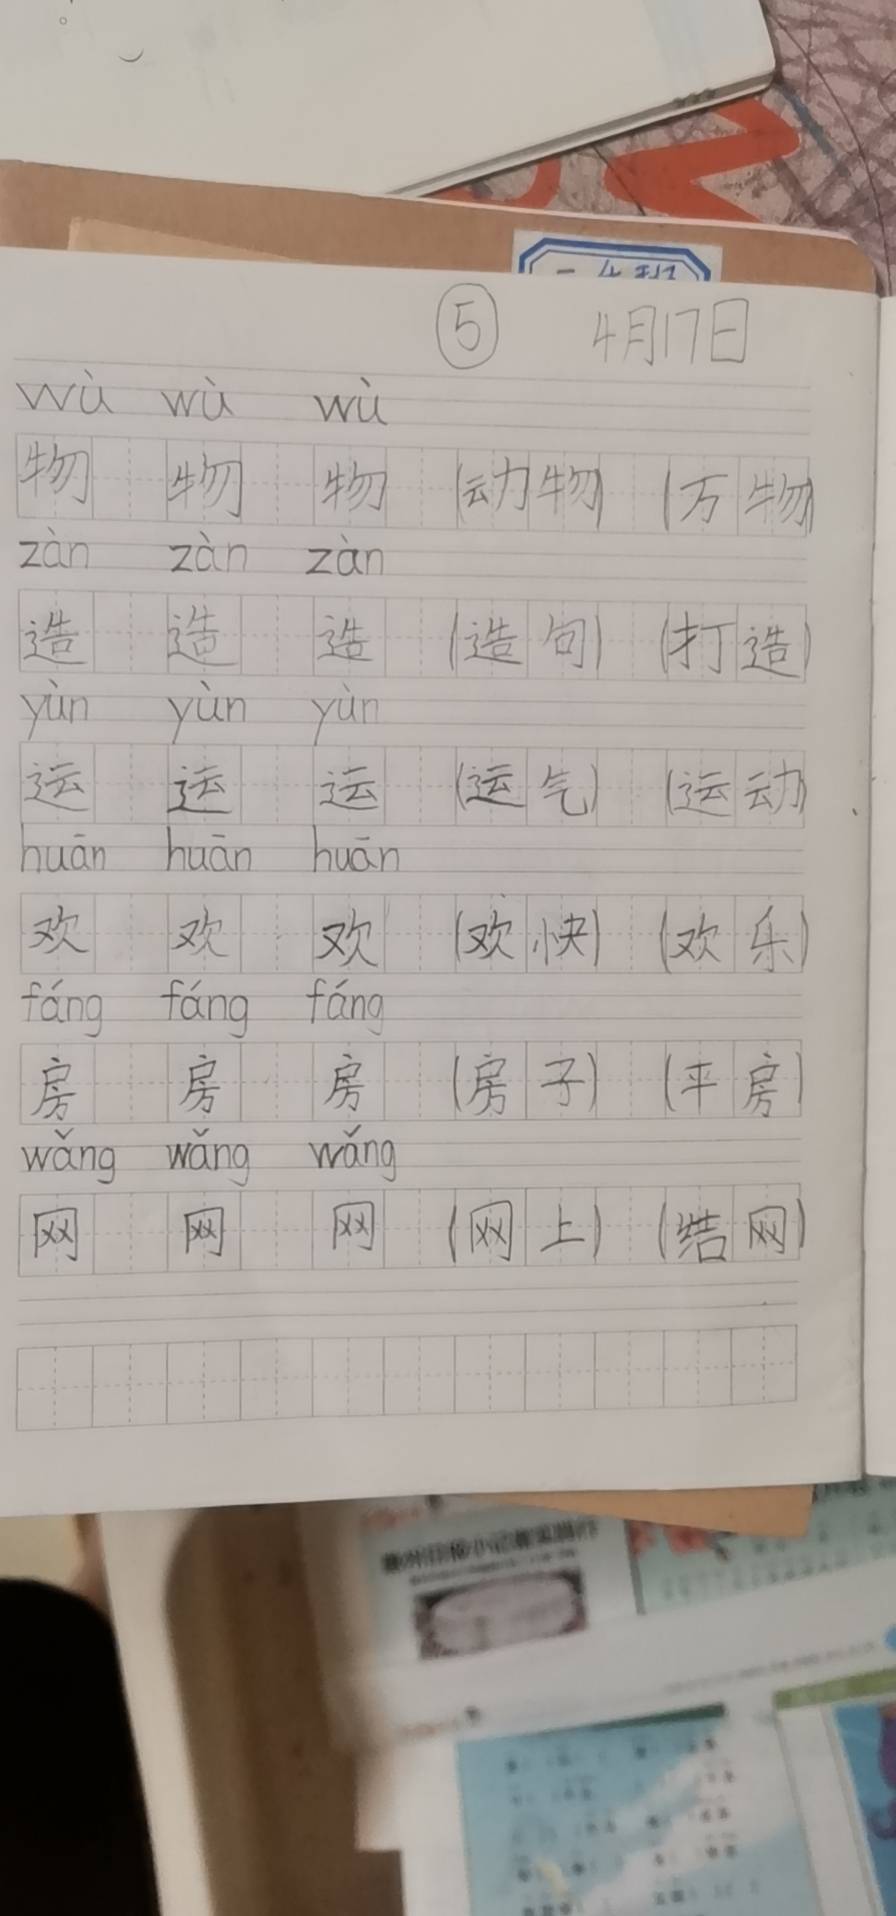 ⑤ 4月17日
wù wù wù
物 物 物 (动物) (万物)
zàn zàn zàn
造 造 造 (造句) (打造)
yùn yùn yùn
运 运 运 (运气) (运动)
huān huān huān
欢 欢 欢 (欢快) (欢乐)
fáng fáng fáng
房 房 房 (房子) (平房)
wǎng wǎng wǎng
网 网 网 (网上) (结网)